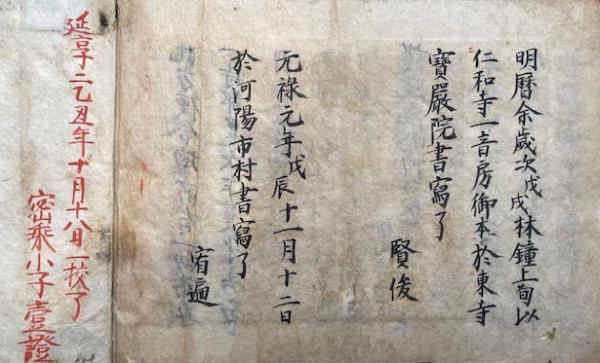 明曆余歲次戊戌林鐘上旬以
仁和寺一音房御本於東寺
寶嚴院書寫了
賢俊
元祿元年戊辰十一月十二日
於河陽市村書寫了
宥遍
延享二乙丑年十月十八日一挍了
密乘小子壹證